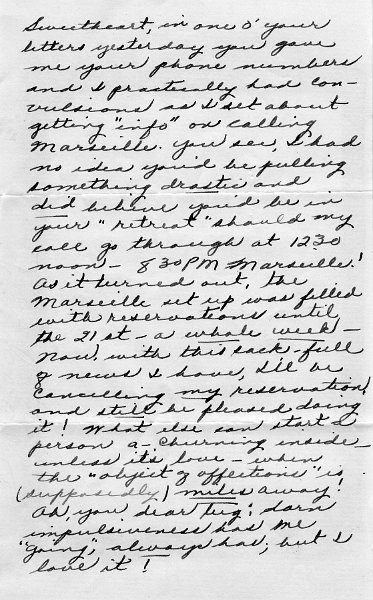 Sweetheart, in one o' your
letters yesterday you gave
me your phone numbers
and I practically had con-
vulsions as I set about
getting "info" on calling
Marseille. You see, I had
no idea you'd be pulling
something drastic and
did believe you'd be in
your "retreat" should my
call go through at 1230
noon - 830 PM Marseille!
As it turned out, the
Marseille set up was filled
with reservations until
the 21st - a whole week -
Now, with this sack-full
of news I have, I'll be
cancelling my reservation,
and still be pleased doing
it! What else can start a
person a-churning inside -
unless it's love - when
the "object of affections" is
(supposedly) miles away!
Ah, you dear big; darn
impulsiveness has me
"going", always has; but I
love it!